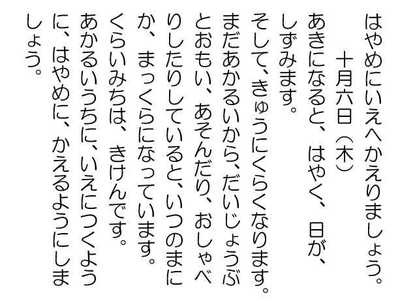 はやめにいえへかえりましょう。
十月六日（木）
あきになると、はやく、日が、
しずみます。
そして、きゅうにくらくなります。
まだあかるいから、だいじょうぶ
とおもい、あそんだり、おしゃべ
りしたりしていると、いつのまに
か、まっくらになっています。
くらいみちは、きけんです。
あかるいうちに、いえにつくよう
に、はやめに、かえるようにしま
しょう。